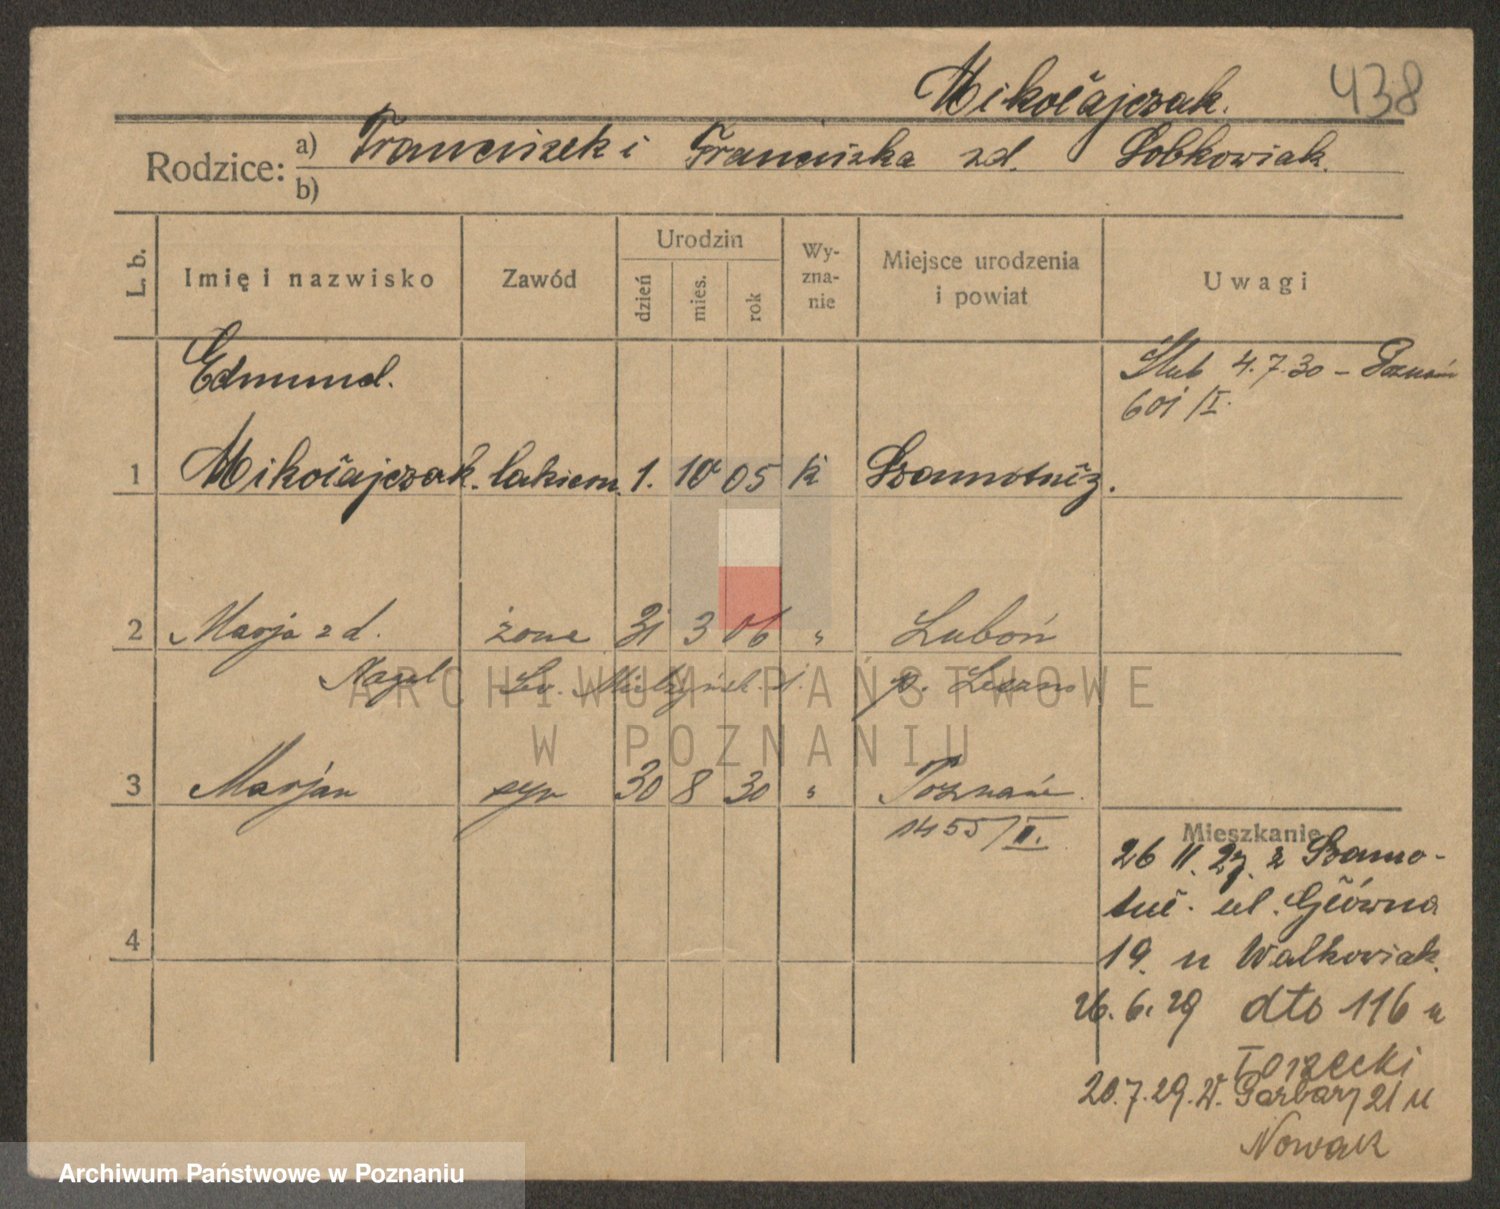 Mikołajczak. 438
Rodzice: a) Franciszek i Franciszka zd. Sobkowiak.
b)
L. b. Imię i nazwisko Zawód Urodzin dzień mies. rok Wy-zna-nie Miejsce urodzenia i powiat Uwagi
Edmund. Ślub 4.7.30 – Poznań
601/I.
1 Mikołajczak. lakiern. 1. 10 05 k Szamotuły.
2 Marja zd. żona 31 3 06 " Luboń
Nagel p. Leszno
3 Marjan syn 30 8 30 " Poznań.
1455/II.
Mieszkanie
26 11. 27. z Szamo-
tuł. ul. Główna
4
19. u Walkowiak.
26.6.29 dto 116 u
Torzecki
20.7.29. W. Garbary 21 u
Nowak
ARCHIWUM PAŃSTWOWE
W POZNANIU
Archiwum Państwowe w Poznaniu